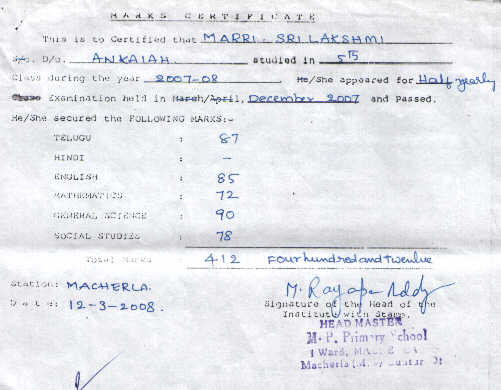 MARKS CERTIFICATE
This is to Certified that MARRI. SRI LAKSHMI
S/o. D/o. ANKAIAH studied in 5th
Class during the year 2007-08 He/She appeared for Half yearly
Examination held in March/April, December 2007 and Passed.
He/She secured the FOLLOWING MARKS:-
TELUGU : 87
HINDI : -
ENGLISH : 85
MATHEMATICS : 72
GENERAL SCIENCE : 90
SOCIAL STUDIES : 78
Total Marks 412 Four hundred and twenlve
Station: MACHERLA.
Date: 12-3-2008.
Signature of the Head of the
Institut with Stamp.
HEAD MASTER
M. P. Primary School
1 Ward,
Macherla